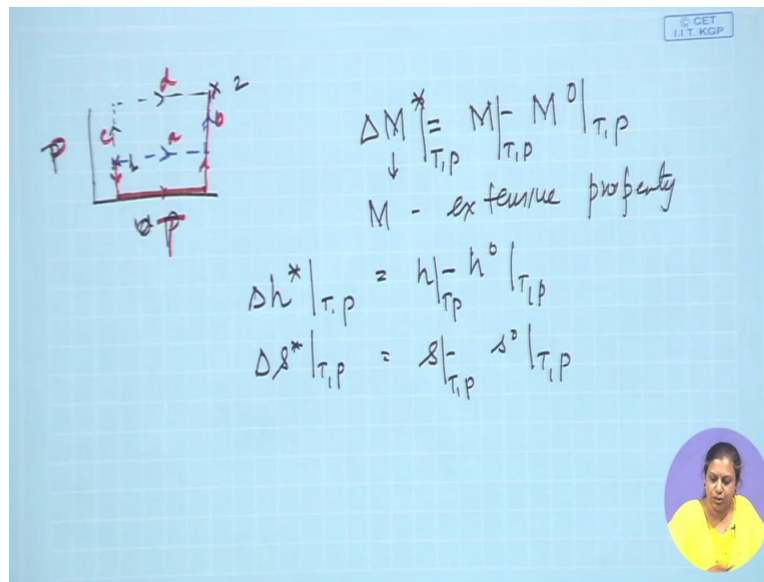 © CET
I.I.T. KGP
d
2
c
b
P
1
a
ΔM*|T,P = M|T,P - M⁰|T,P
↓
M - extensive property
Δh*|T,P = h|TP - h⁰|T,P
Δs*|T,P = s|T,P - s⁰|T,P